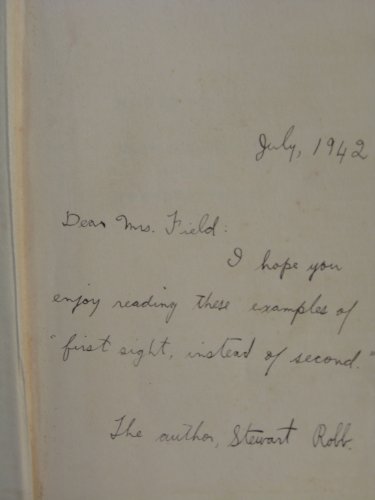 July, 1942
Dear Mrs. Field:
I hope you
enjoy reading these examples of
"first sight, instead of second."
The author, Stewart Robb.